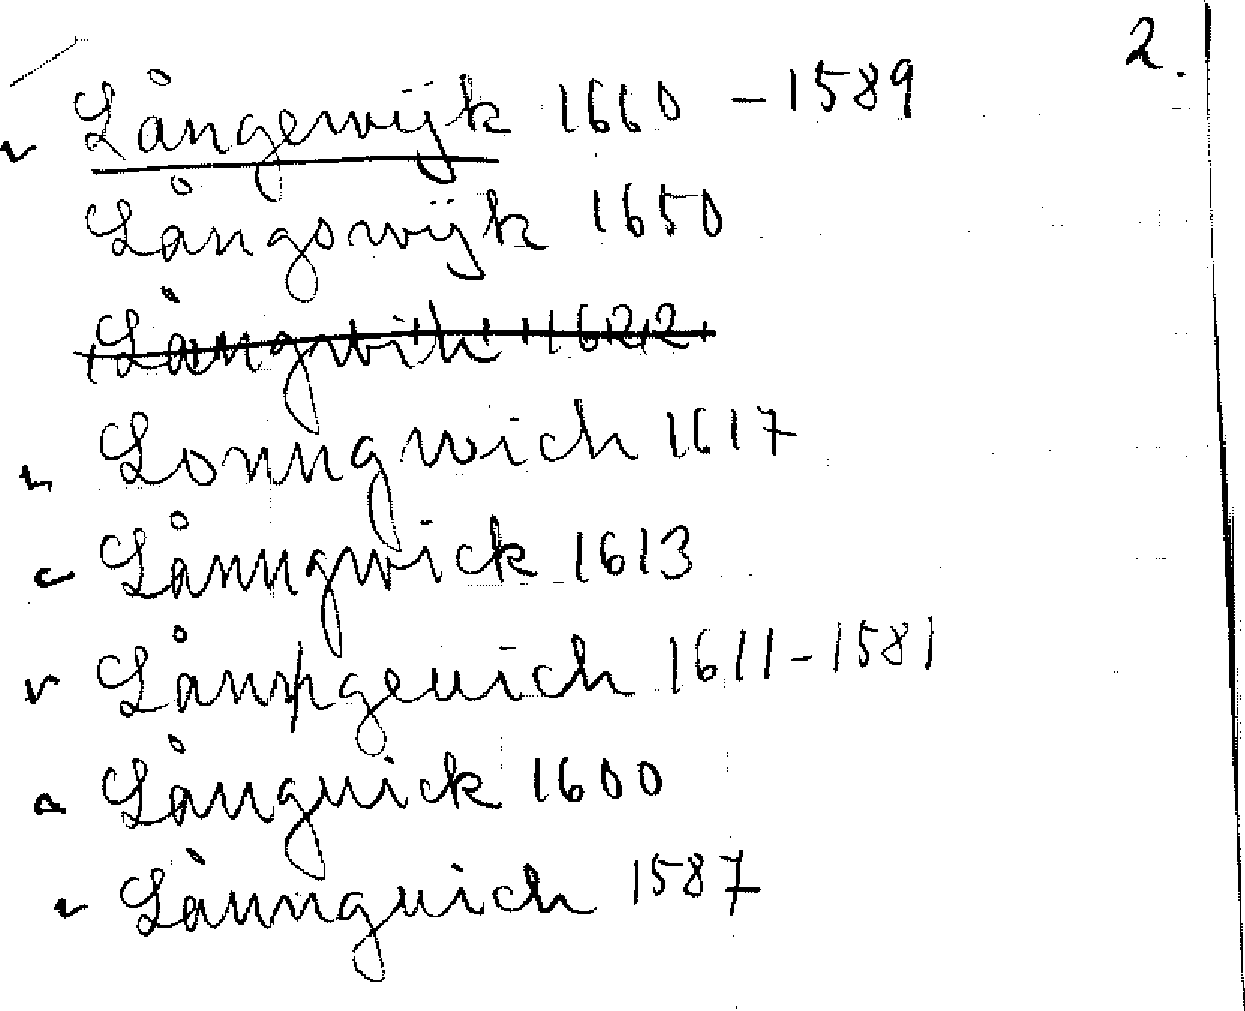 2.
Långewijk 1660 - 1589
Långswijk 1650
Långwik 1622
Lonngwich 1617
Lånngwick 1613
Lånngeuich 1611-1581
Långuick 1600
Lånnguich 1587